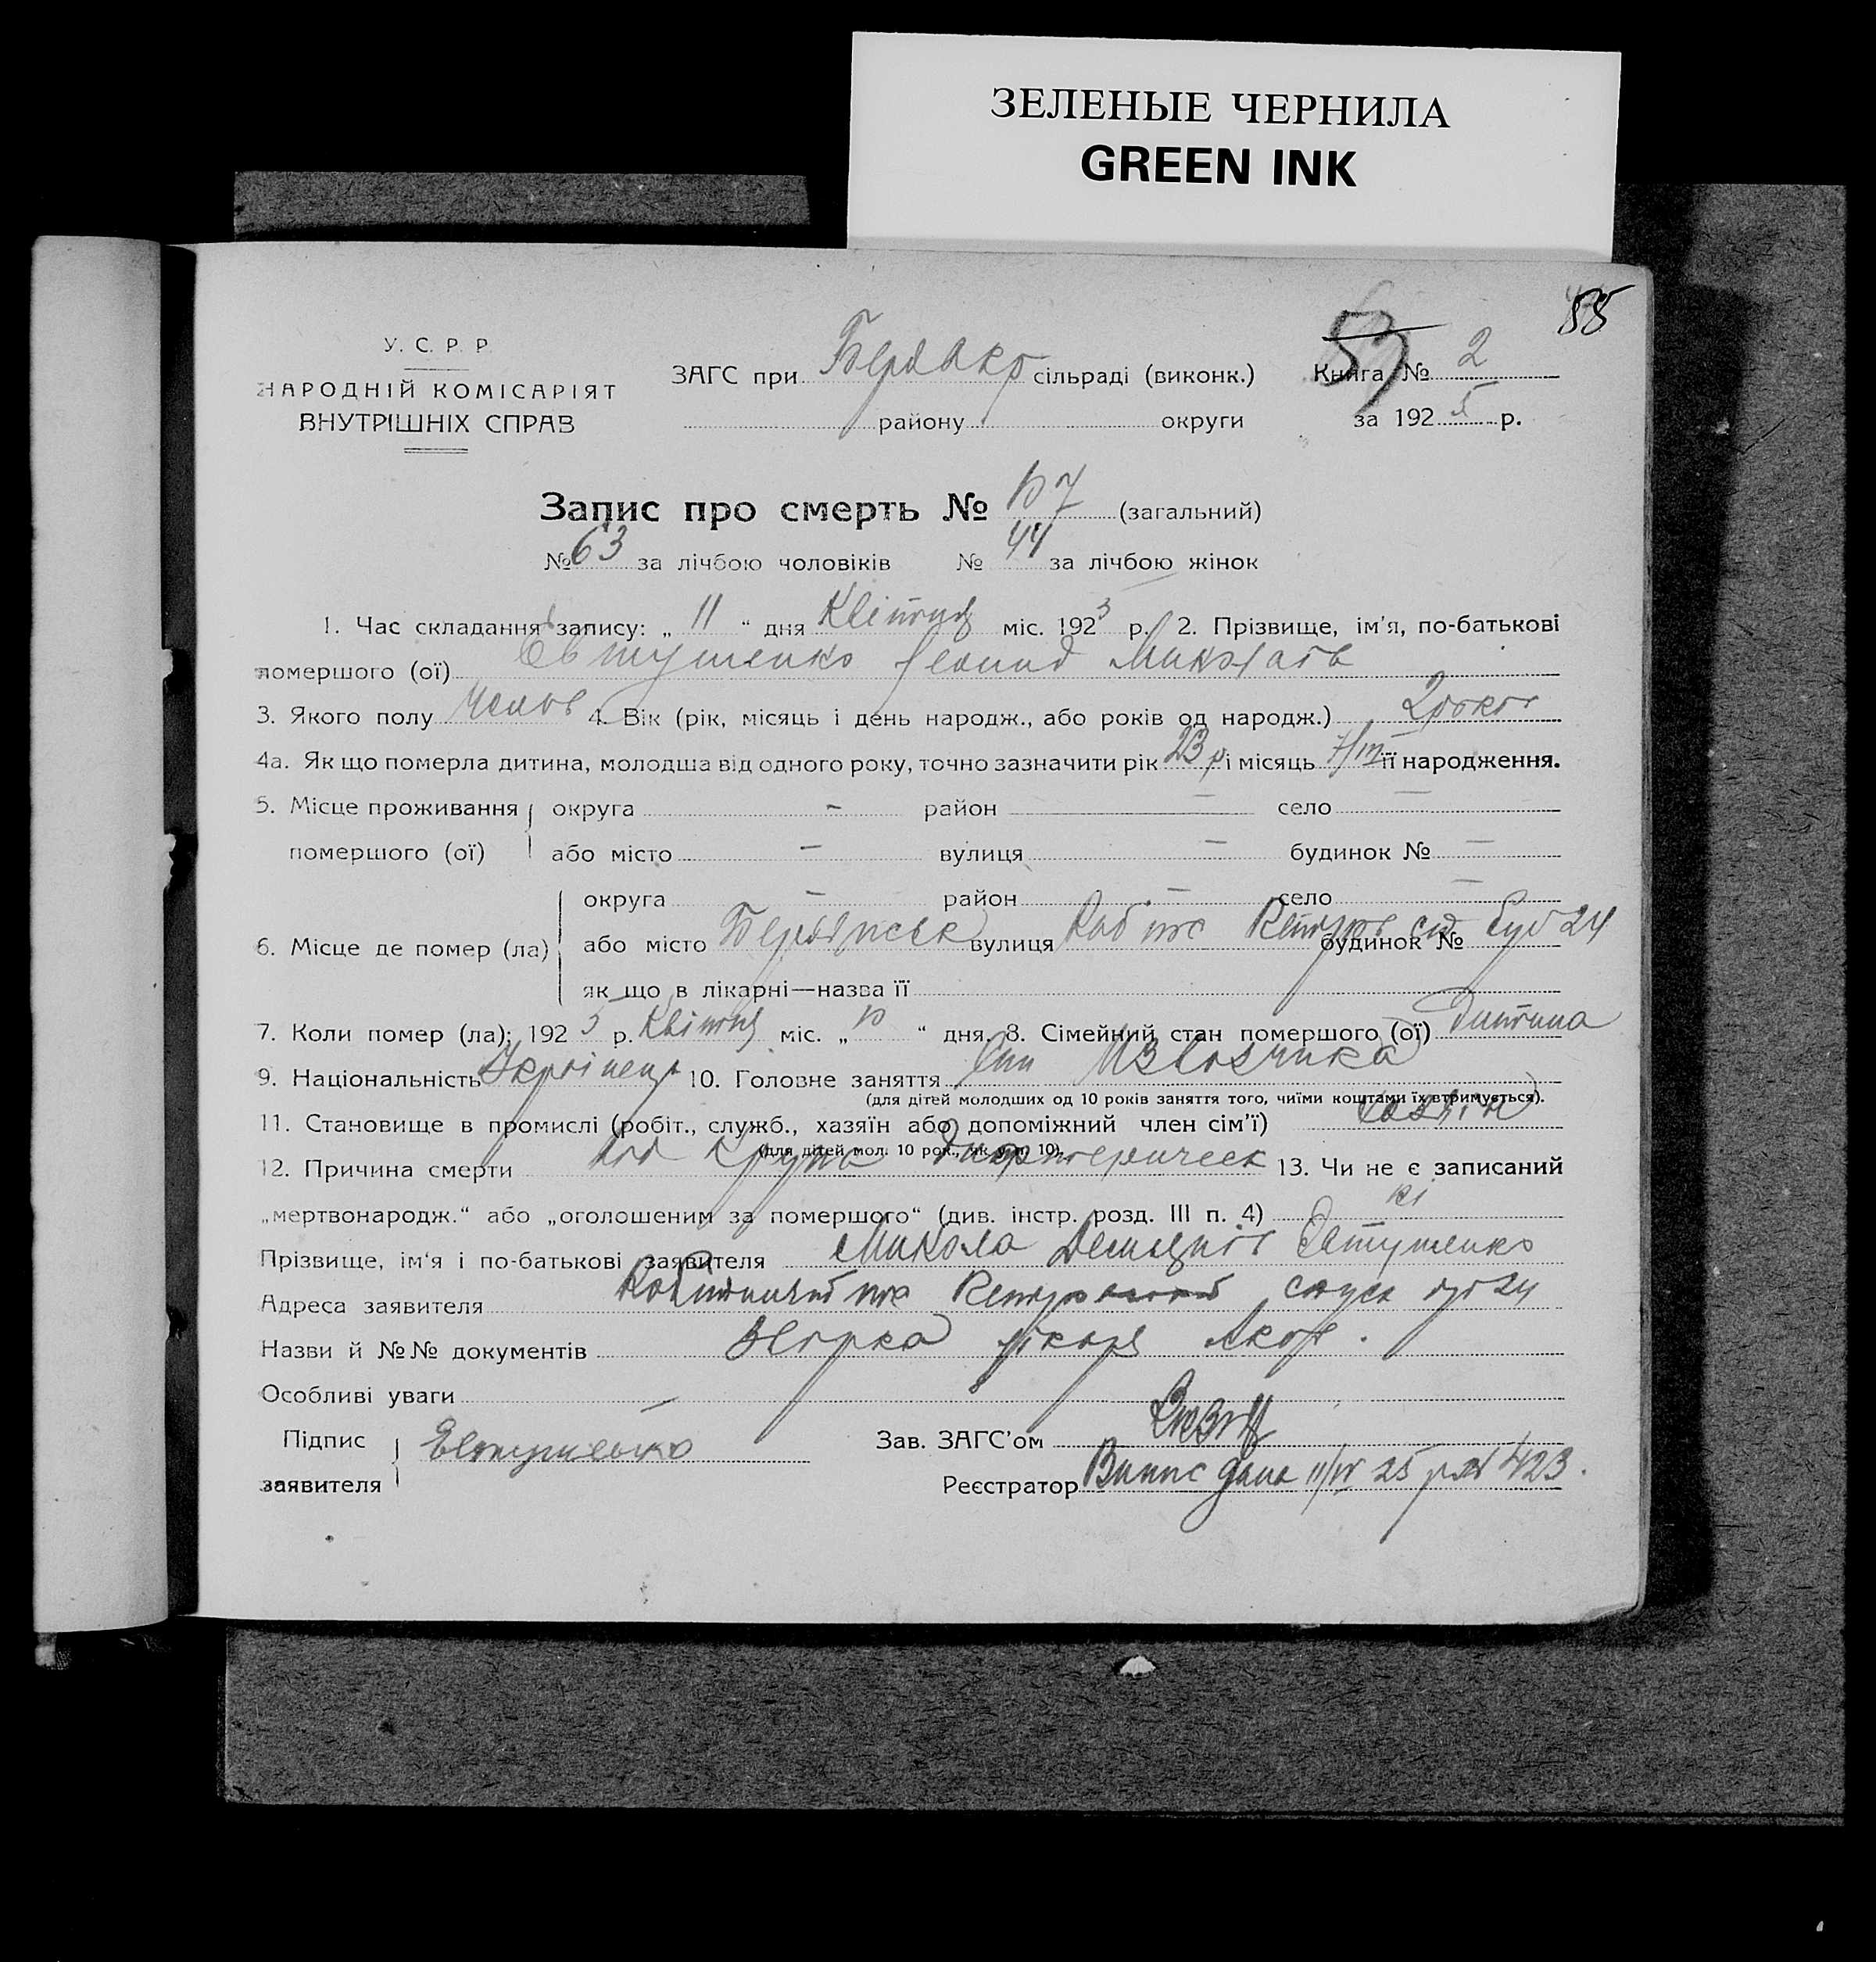 ЗЕЛЕНЫЕ ЧЕРНИЛА
GREEN INK
55
У. С. Р. Р.
НАРОДНІЙ КОМІСАРІЯТ
ВНУТРІШНІХ СПРАВ
ЗАГС при сільраді (виконк.) Книга № 2
району округи за 1925 р.
Запис про смерть № (загальний)
№ 63 за лічбою чоловіків № 44 за лічбою жінок
1. Час складання запису: „ 11 “ дня Квітня міс. 192 р. 2. Прізвище, ім’я, по-батькові
помершого (ої) Євтушенко Леонид Миколаїв
3. Якого полу 4. Вік (рік, місяць і день народж., або років од народж.) 2 роки
4а. Як що померла дитина, молодша від одного року, точно зазначити рік 23 р і місяць 7/III її народження.
5. Місце проживання округа – район – село –
помершого (ої) або місто – вулиця – будинок № –
округа – район – село –
6. Місце де помер (ла) або місто Бердянськ вулиця будинок № буд 24
як що в лікарні—назва її
7. Коли помер (ла): 1925 р. Квітня міс. „ 10 “ дня. 8. Сімейний стан помершого (ої) Дитина
9. Національність Українец 10. Головне заняття Син Извозчика
(для дітей молодших од 10 років заняття того, чиїми коштами їх втримується).
11. Становище в промислі (робіт., служб., хазяїн або допоміжний член сім’ї) хазяїн
(для дітей мол. 10 рок., як у п. 10).
12. Причина смерти Од Крупа дифтерическ 13. Чи не є записаний
„мертвонародж.“ або „оголошеним за помершого“ (див. інстр. розд. III п. 4) ні
Прізвище, ім‘я і по-батькові заявителя Микола Євтушенко
Адреса заявителя спуск буд 24
Назви й №№ документів лікаря
Особливі уваги –
Підпис Евтушенко Зав. ЗАГС’ом
заявителя Реєстратор Випис дана 11/IV 25 р № 423.